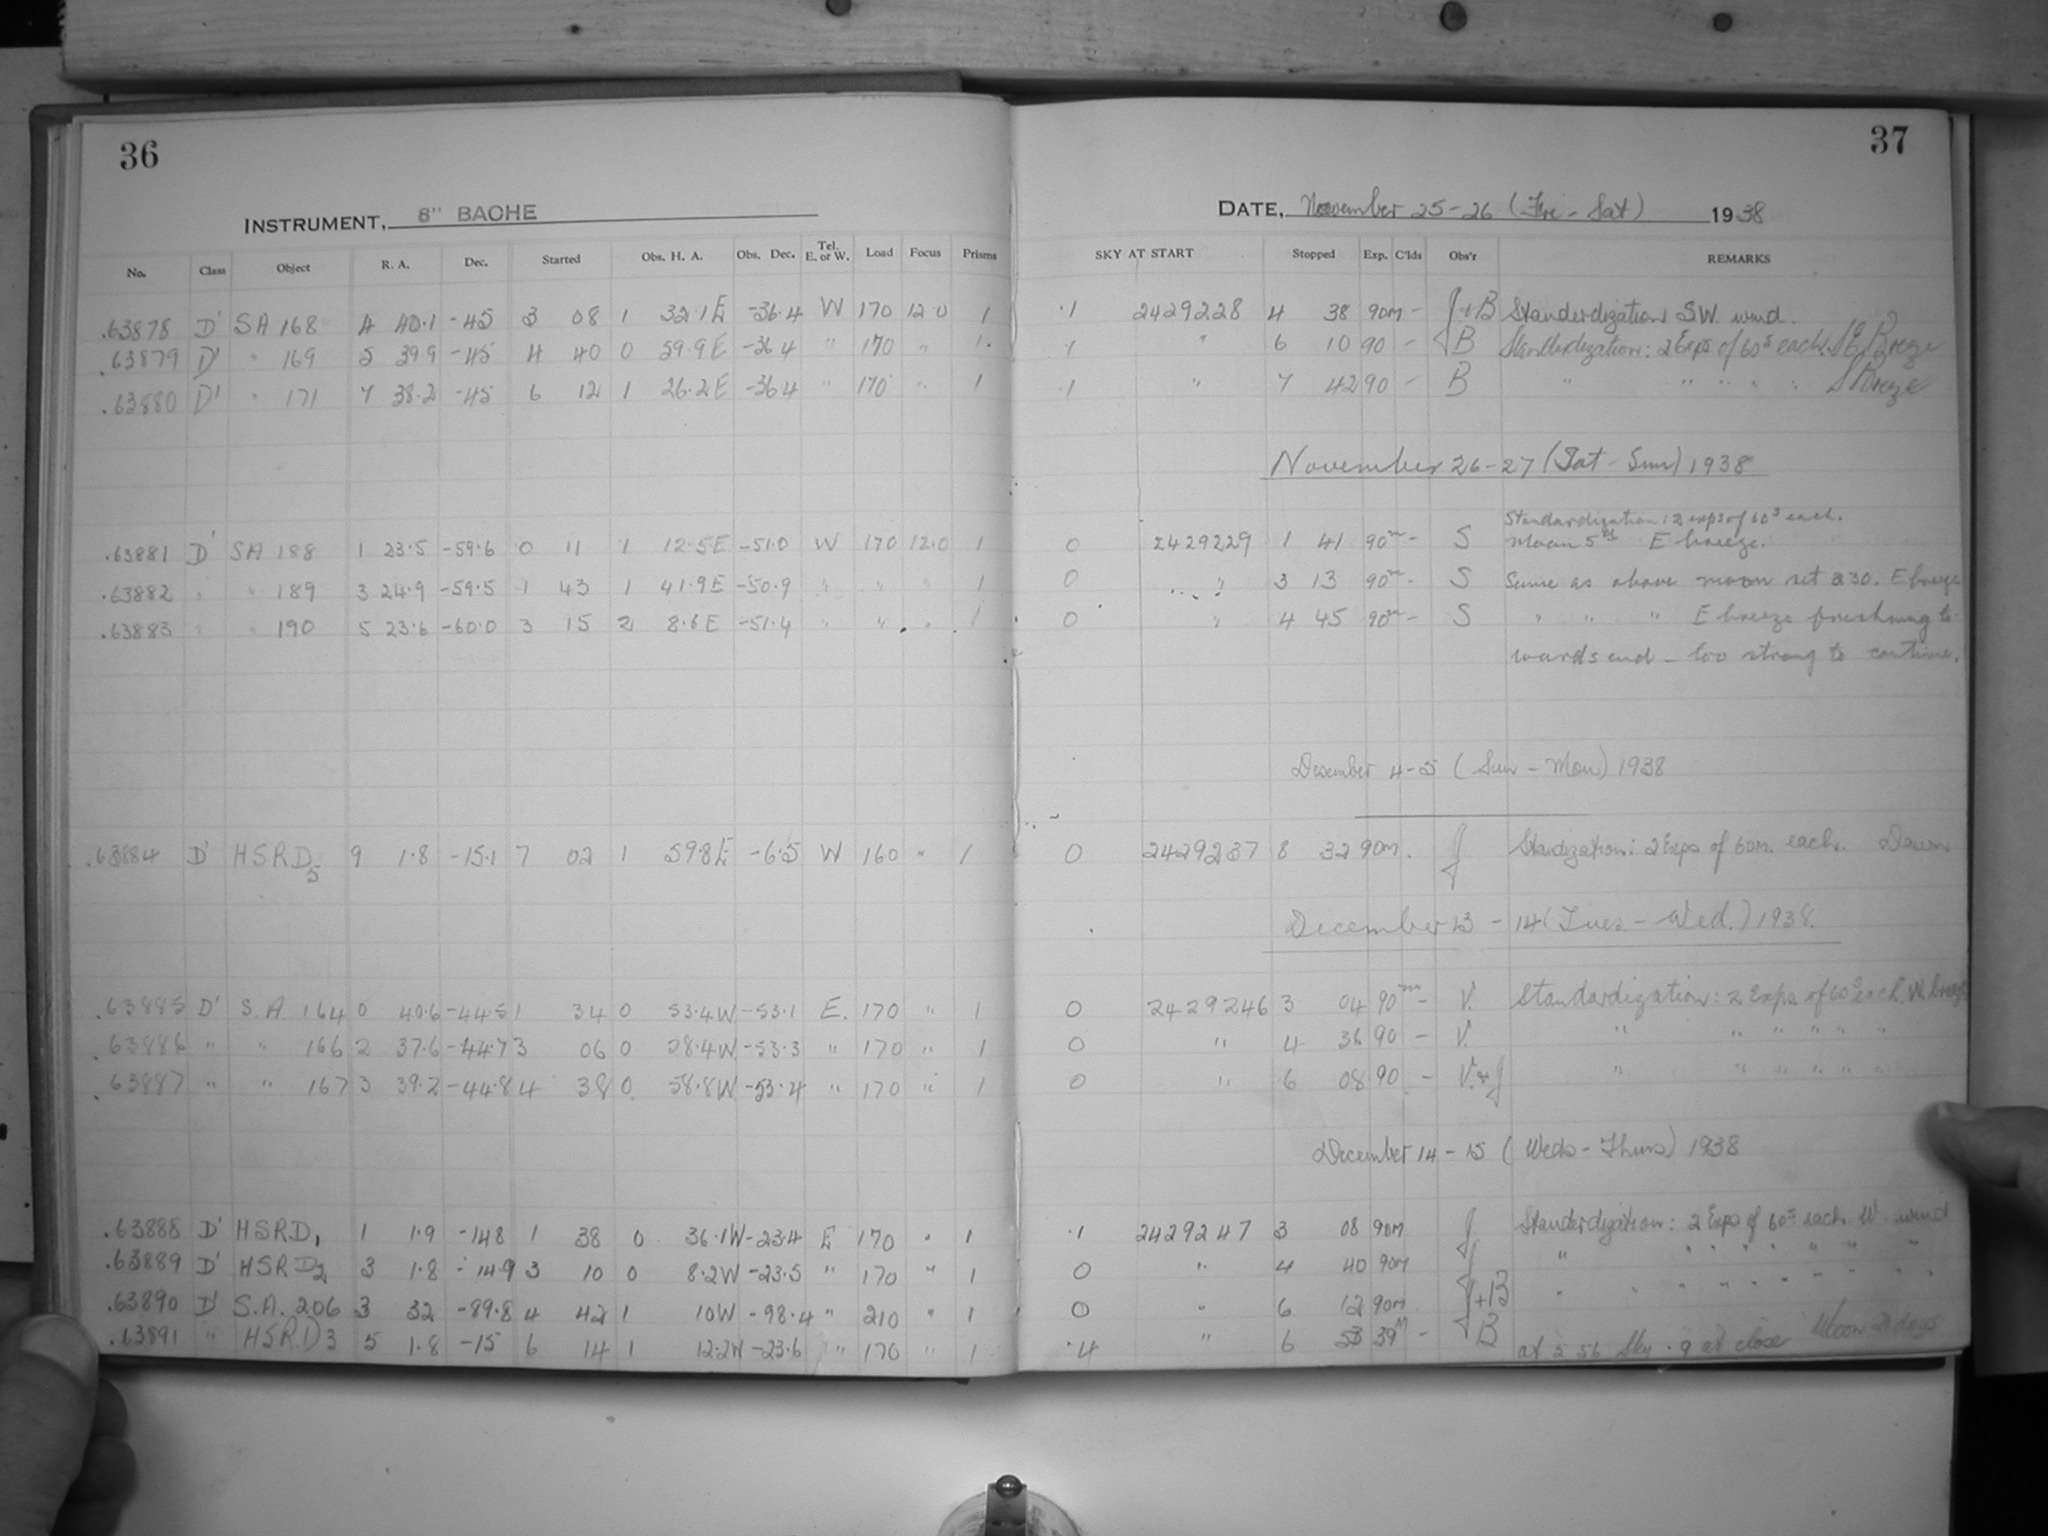 36
INSTRUMENT, 8" BACHE
No. Class Object R. A. Dec. Started Obs. H. A. Obs. Dec. Tel. E. or W. Load Focus Prisms
.63878 D' SA 168 4 40.1 -45 3 08 1 32.1E -36.4 W 170 12.0 1
.63879 D' " 169 5 39.9 -45 4 40 0 59.9E -36.4 " 170 " 1
.63880 D' " 171 7 38.2 -45 6 12 1 26.2E -36.4 " 170 " 1
.63881 D' SA 188 1 23.5 -59.6 0 11 1 12.5E -51.0 W 170 12.0 1
.63882 " " 189 3 24.9 -59.5 1 43 1 41.9E -50.9 " " " 1
.63883 " " 190 5 23.6 -60.0 3 15 2 8.6E -51.4 " " " 1
.63884 D' HSRD5 9 1.8 -15.1 7 02 1 59.8E -6.5 W 160 " 1
.63885 D' S.A. 164 0 40.6 -44.5 1 34 0 53.4W -53.1 E. 170 " 1
.63886 " " 166 2 37.6 -44.7 3 06 0 28.4W -53.3 " 170 " 1
.63887 " " 167 3 39.2 -44.8 4 38 0 58.8W -53.4 " 170 " 1
.63888 D' HSRD1 1 1.9 -14.8 1 38 0 36.1W -23.4 E 170 " 1
.63889 D' HSRD2 3 1.8 -14.9 3 10 0 8.2W -23.5 " 170 " 1
.63890 D' S.A. 206 3 32 -89.8 4 42 1 10W -98.4 " 210 " 1
.63891 " HSRD3 5 1.8 -15 6 14 1 12.2W -23.6 " 170 " 1
37
DATE, November 25-26 (Fri - Sat) 1938
SKY AT START Stopped Exp. C'lds Obs'r REMARKS
.1 2429228 4 38 90m - J+B Standerdization SW. wind.
.1 " 6 10 90 - B Standerdization: 2 Exps of 60s each. SE Breeze
.1 " 7 42 90 - B " " " " " S Breeze
November 26-27 (Sat - Sun) 1938
Standardization: 2 exps of 60s each.
0 2429229 1 41 90m - S Moon 5d E breeze.
0 " 3 13 90m - S Same as above moon set 2 30. E breeze
0 " 4 45 90m - S " " " E breeze freshning to-
wards end - too strong to continue.
December 4-5 (Sun - Mon) 1938
0 2429237 8 32 90m. J Standization: 2 Exps of 60m. each. Dawn
December 13 - 14 (Tues. - Wed.) 1938.
0 2429246 3 04 90m - V. Standardization: 2 Exps of 60s each. W. breeze
0 " 4 36 90 - V. " " " " " "
0 " 6 08 90 - V.&J " " " " " "
December 14 - 15 (Weds - Thurs) 1938
.1 2429247 3 08 90m J Standerdization: 2 Exps of 60s each. W. wind
0 " 4 40 90m J " " " " " " "
0 " 6 12 90m J+B " " " " " " "
.4 " 6 53 39m - B at 5 56 Sky .9 at close Moon 21 days